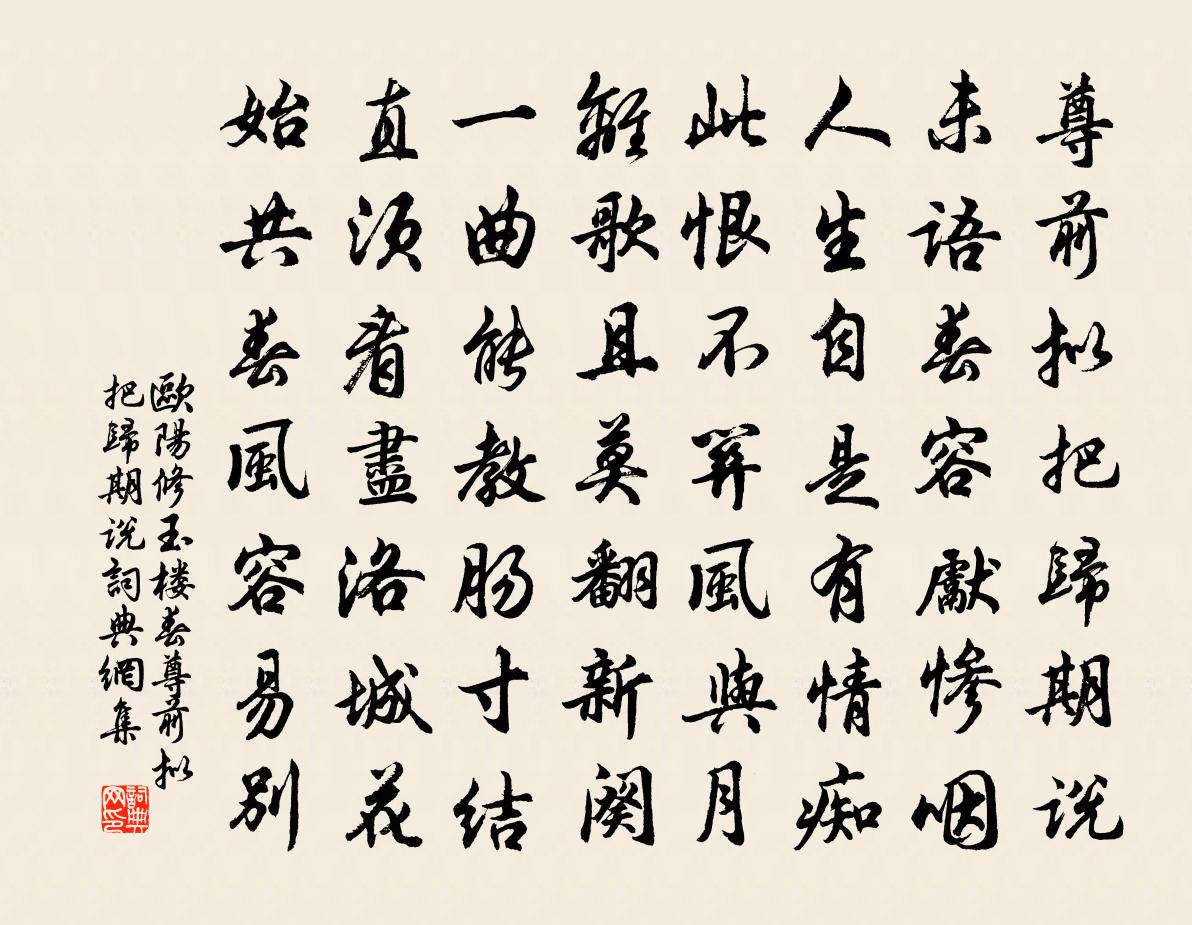 尊前拟把歸期说
未語春容獻惨咽
人生自是有情痴
此恨不关風與月
離歌且莫翻新闋
一曲能教肠寸结
直須看盡洛城花
始共春風容易别
歐陽修玉楼春尊前拟
把歸期说詞典網集
詞典
网印